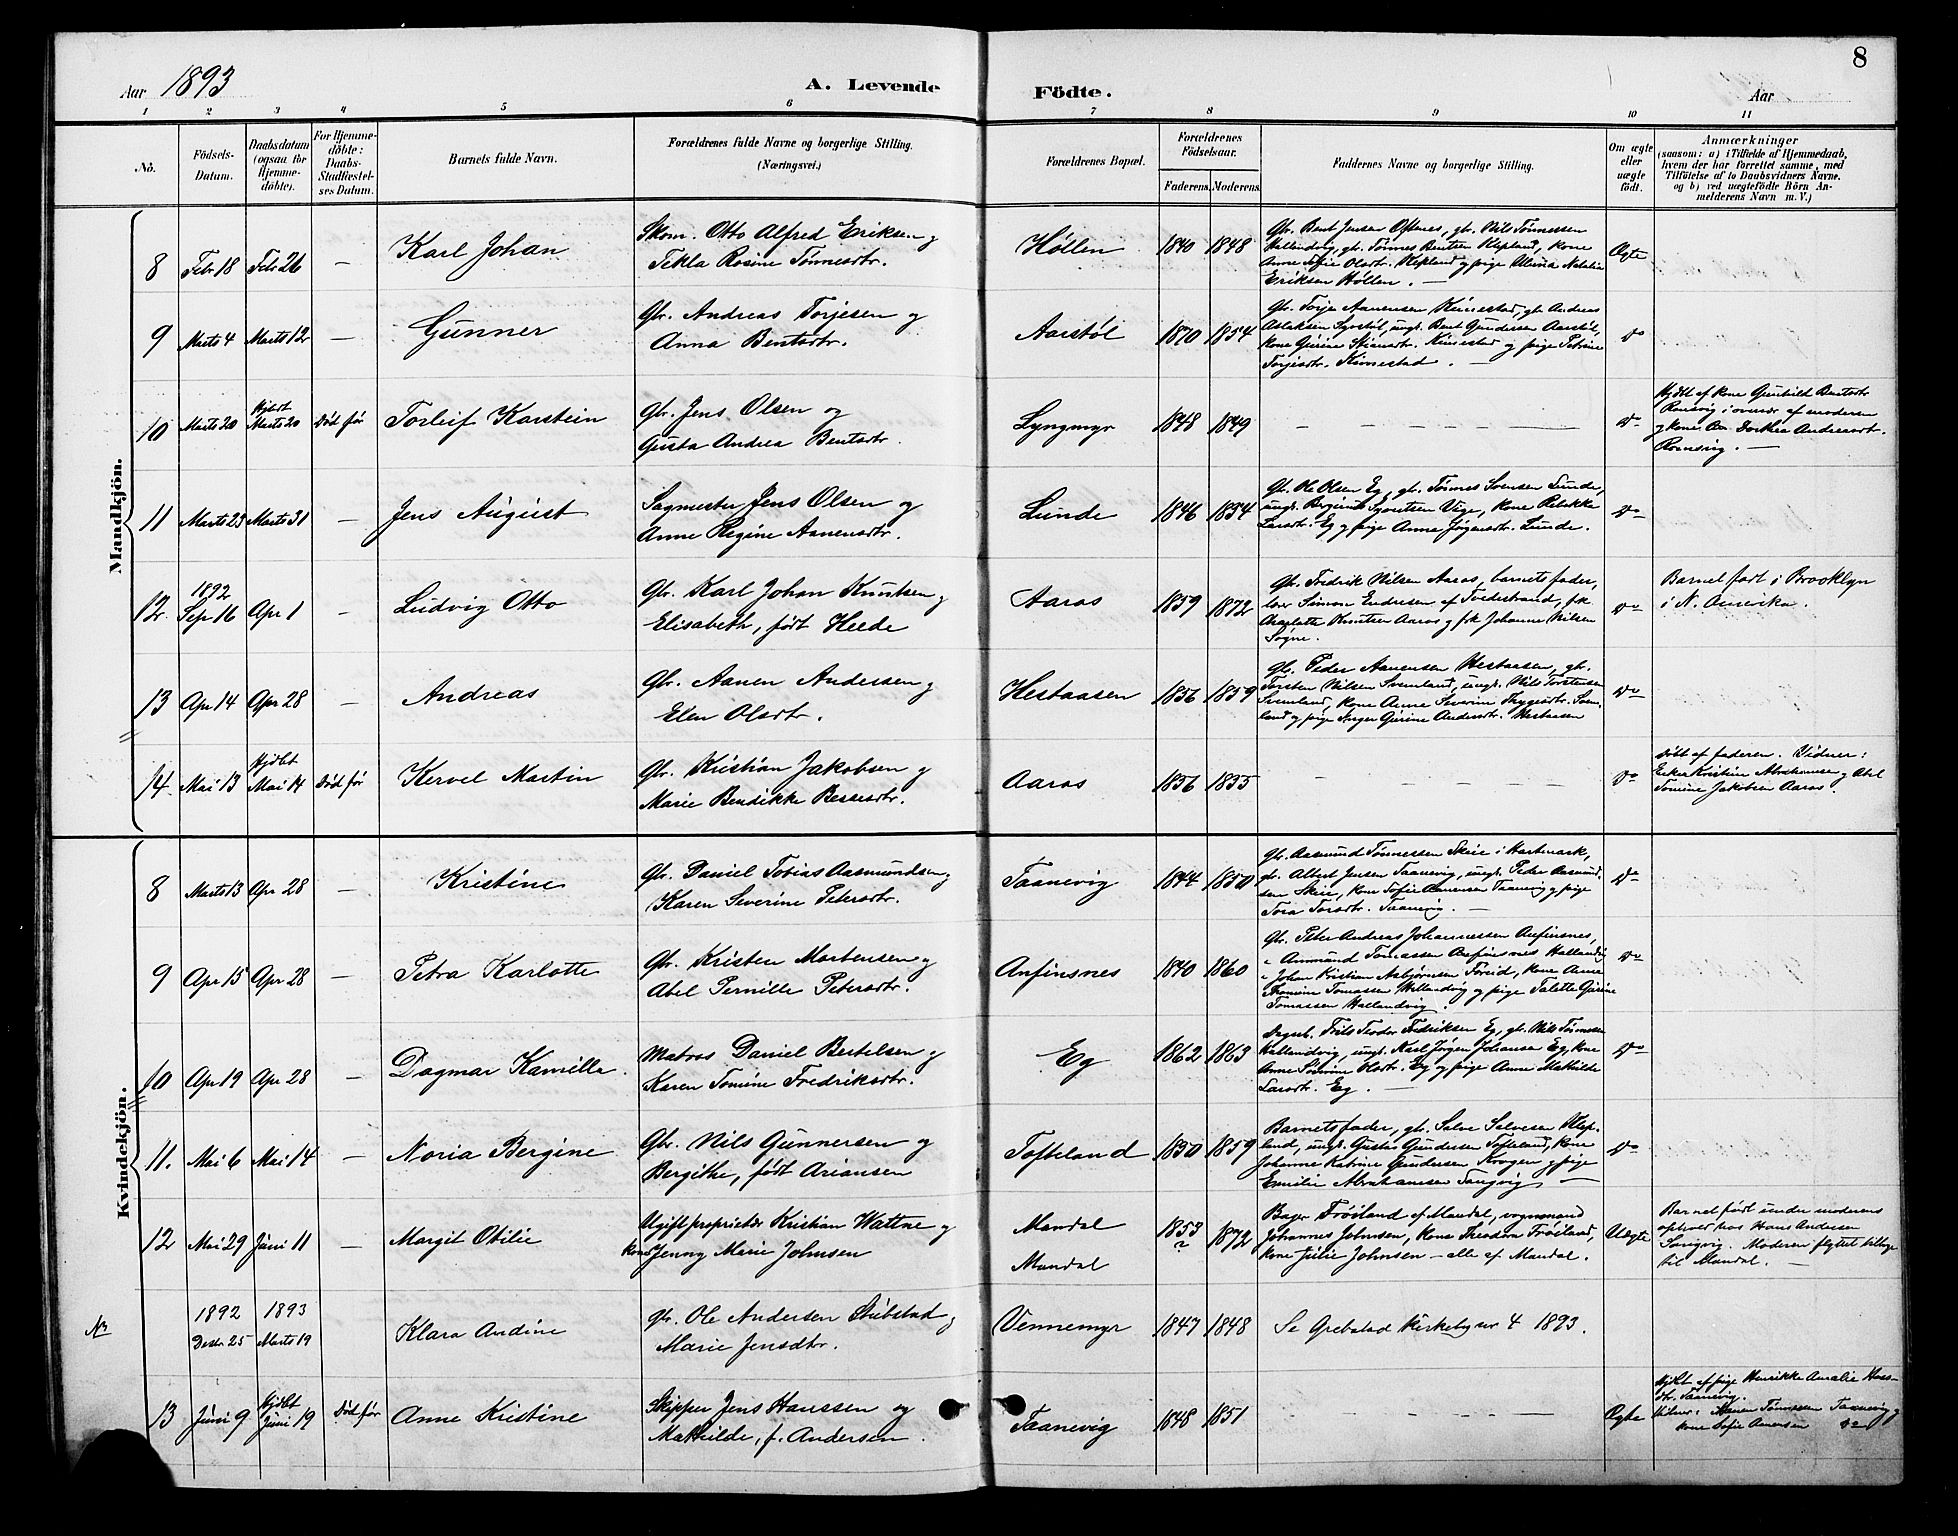 8
Aar 1893
A. Levende Födte.
Aar
1 2 3 4 5 6 7 8 9 10 11
No.
Födsels-Datum.
Daabsdatum (ogsaa for Hjemme-døbte).
For Hjemme-døbte: Daabs-Stadfæstel-ses Datum.
Barnets fulde Navn.
Forældrenes fulde Navne og borgerlige Stilling. (Næringsvei.)
Forældrenes Bopæl.
Forældrenes Födselsaar.
Faderens. Moderens.
Faddernes Navne og borgerlige Stilling.
Om ægte eller uægte født.
Anmærkninger
(saasom: a) i Tilfælde af Hjemmedaab,
hvem der har forrettet samme, med
Tilföielse af to Daabsvidners Navne.
og b) ved uægtefödte Börn An-
melderens Navn m. V.)
Mandkjön.
8 Febr 18 Febr 26 — Karl Johan
Skom. Otto Alfred Eriksen og
Tekla Rosine Tønnesdtr.
Höllen 1840 1848
Gbr. Bent Jensen Oftenes, gbr. Nils Tönnessen
Hallandvig, gbr. Tønnes Bentsen Kepland, kone
Anne Sofie Olsdtr. Kepland og pige Natalie
Eriksen Hölden. —
Ægte
9 Marts 4 Marts 12 — Gunner
Gbr. Andreas Torjesen og
Anna Bentsdtr.
Aarstöl 1870 1854
Gbr. Torje Aanensen Kimestad, gbr. Andreas
Aslaksen, ungk. Bent Gundersen Aarstöl,
kone Gurine Kimestad og pige Petrine
Torjesdtr. Kimestad. —
do
10 Marts 20 Hjdöbt Marts 20 Död för Torleif Karstein
Gbr. Jens Olsen og
Gusta Andrea Bentsdtr.
Lyngmyr 1848 1849
— — — — —
do
Hjdbt af kone Gunhild Bentsdtr
Ronsvig i overvær af moderen
og kone An. Dorthea Andreasdtr.
Ronsvig. —
11 Marts 23 Marts 31 — Jens August
Sagmester Jens Olsen og
Anne Regine Aanensdtr.
Lunde 1846 1854
Gb. Ole Olsen Eg, gb. Tönnes Svensen Lunde,
ungk. Syvertsen Vige, kone Rebekke
Larsdtr. Eg og pige Anne Jörgensdtr. Lunde.
do
12 1892 Sep 16 Apr 1 — Ludvig Otto
Gbr. Karl Johan Knutsen og
Elisabeth, født Heede
Aaros 1859 1872
Gb. Fredrik Nilsen Aaros, barnets fader,
Simon Endresen af Tvedestrand, frk
Charlotte Knutsen Aaros og frk Johanne Nilsen
Søgne.
do
Barnet født i Brooklyn
i N. Amerika.
13 Apr 14 Apr 28 — Andreas
Gbr. Aanen Andersen og
Elen Olsdtr.
Hestaasen 1856 1859
Gb. Peder Aanensen Hestaasen, gb.
Torsten Nilsen Svenland, ungk. Nils Torstensen
Svenland, kone Anne Severine Trygesdtr. Sven-
land og pige Inger Gurine Andersdtr. Hestaasen
do
14 Mai 13 Hjdbt Mai 14 Död för Kervel Martin
Gbr. Kristian Jakobsen og
Marie Bendikke Bessesdtr.
Aaros 1856 1855
— — — — —
do
Döbt af faderen. Vidner:
Enke Kristine Abrahamsen og Abel
Tomine Jakobsen Aaros.
Kvindekjön.
8 Marts 13 Apr 28 — Kristine
Gbr. Daniel Tobias Aasmundsen og
Karen Severine Petersdtr.
Taanevig 1844 1850
Gb. Aasmund Tönnessen Skeie i Hartmark,
gb. Albert Jensen Taanevig, ungk. Peder Aasmund-
sen Skeie, kone Sofie Aanensen Taanevig og pige
Tora Torsdtr. Taanevig. —
do
9 Apr 15 Apr 28 — Petra Karlotte
Gbr. Kristen Mortensen og
Abel Pernille Petersdtr.
Anfinsnes 1840 1860
Gb. Peter Andreas Johannessen Anfinsnes,
" Ammund Tomassen Hallandvig
" Johan Kristian Asbjörnsen, kone Anne
Thomine Tomassen Hallandvig og pige Talette Gurine
Tomassen Hallandvig.
do
10 Apr 19 Apr 28 — Dagmar Kamilla.
Matros Daniel Bertelsen og
Karen Tomine Fredriksdtr.
Eg 1862 1863
Fredriksen Eg, gb. Nils Tönnesen
Hallandvig, ungk. Karl Jørgen Johansen Eg, kone
Anne Olsdtr. Eg og pige Anne Mathilde
Larsdtr. Eg. —
do
11. Mai 6 Mai 14 — Noria Bergine
Gbr. Nils Gunnersen og
Bergithe, født Ariansen
Tofteland 1850 1859
Barnets fader, gb. Salve Salvesen Klep-
land, ungk. Gustav Gundersen Tofteland, kone
Johanne Katrine Gundersen Krogen og pige
Emilie Abrahamsen Tangvig —
do
12 Mai 29 Juni 11 — Margit Otilie
Ugift proprietær Kristian Wattne og
kone Jenny Marie Johnsen
Mandal
Mandal
1853 1872
Bager Fröiland af Mandal, vognmand
Johannes Johnsen, kone Theodora Fröiland,
kone Julie Johnsen — alle af Mandal.
Uægte
Barnet født under moderens
ophold hos Hans Andersen
Tangvig. Moderen flyttet tilbage
til Mandal. —
1892 Decbr. 25 1893 Marts 19 Klara Andine
Gbr. Ole Andersen Stubstad og
Marie Jensdtr.
Vennemyr 1847 1848
Se Grebstad Kirkebog nr 4 1893.
13 Juni 9 Hjdbt Juni 19 Död för Anne Kristine
Skipper Jens Hanssen og
Mathilde, f. Andersen.
Taanevig 1848 1851
— — — — —
Ægte
Hjdbt af pige Henrikke Amalie Hans-
dtr. Taanevig.
Vidner: Maren Tönnessen Taanevig og
kone Sofie Aanensen do